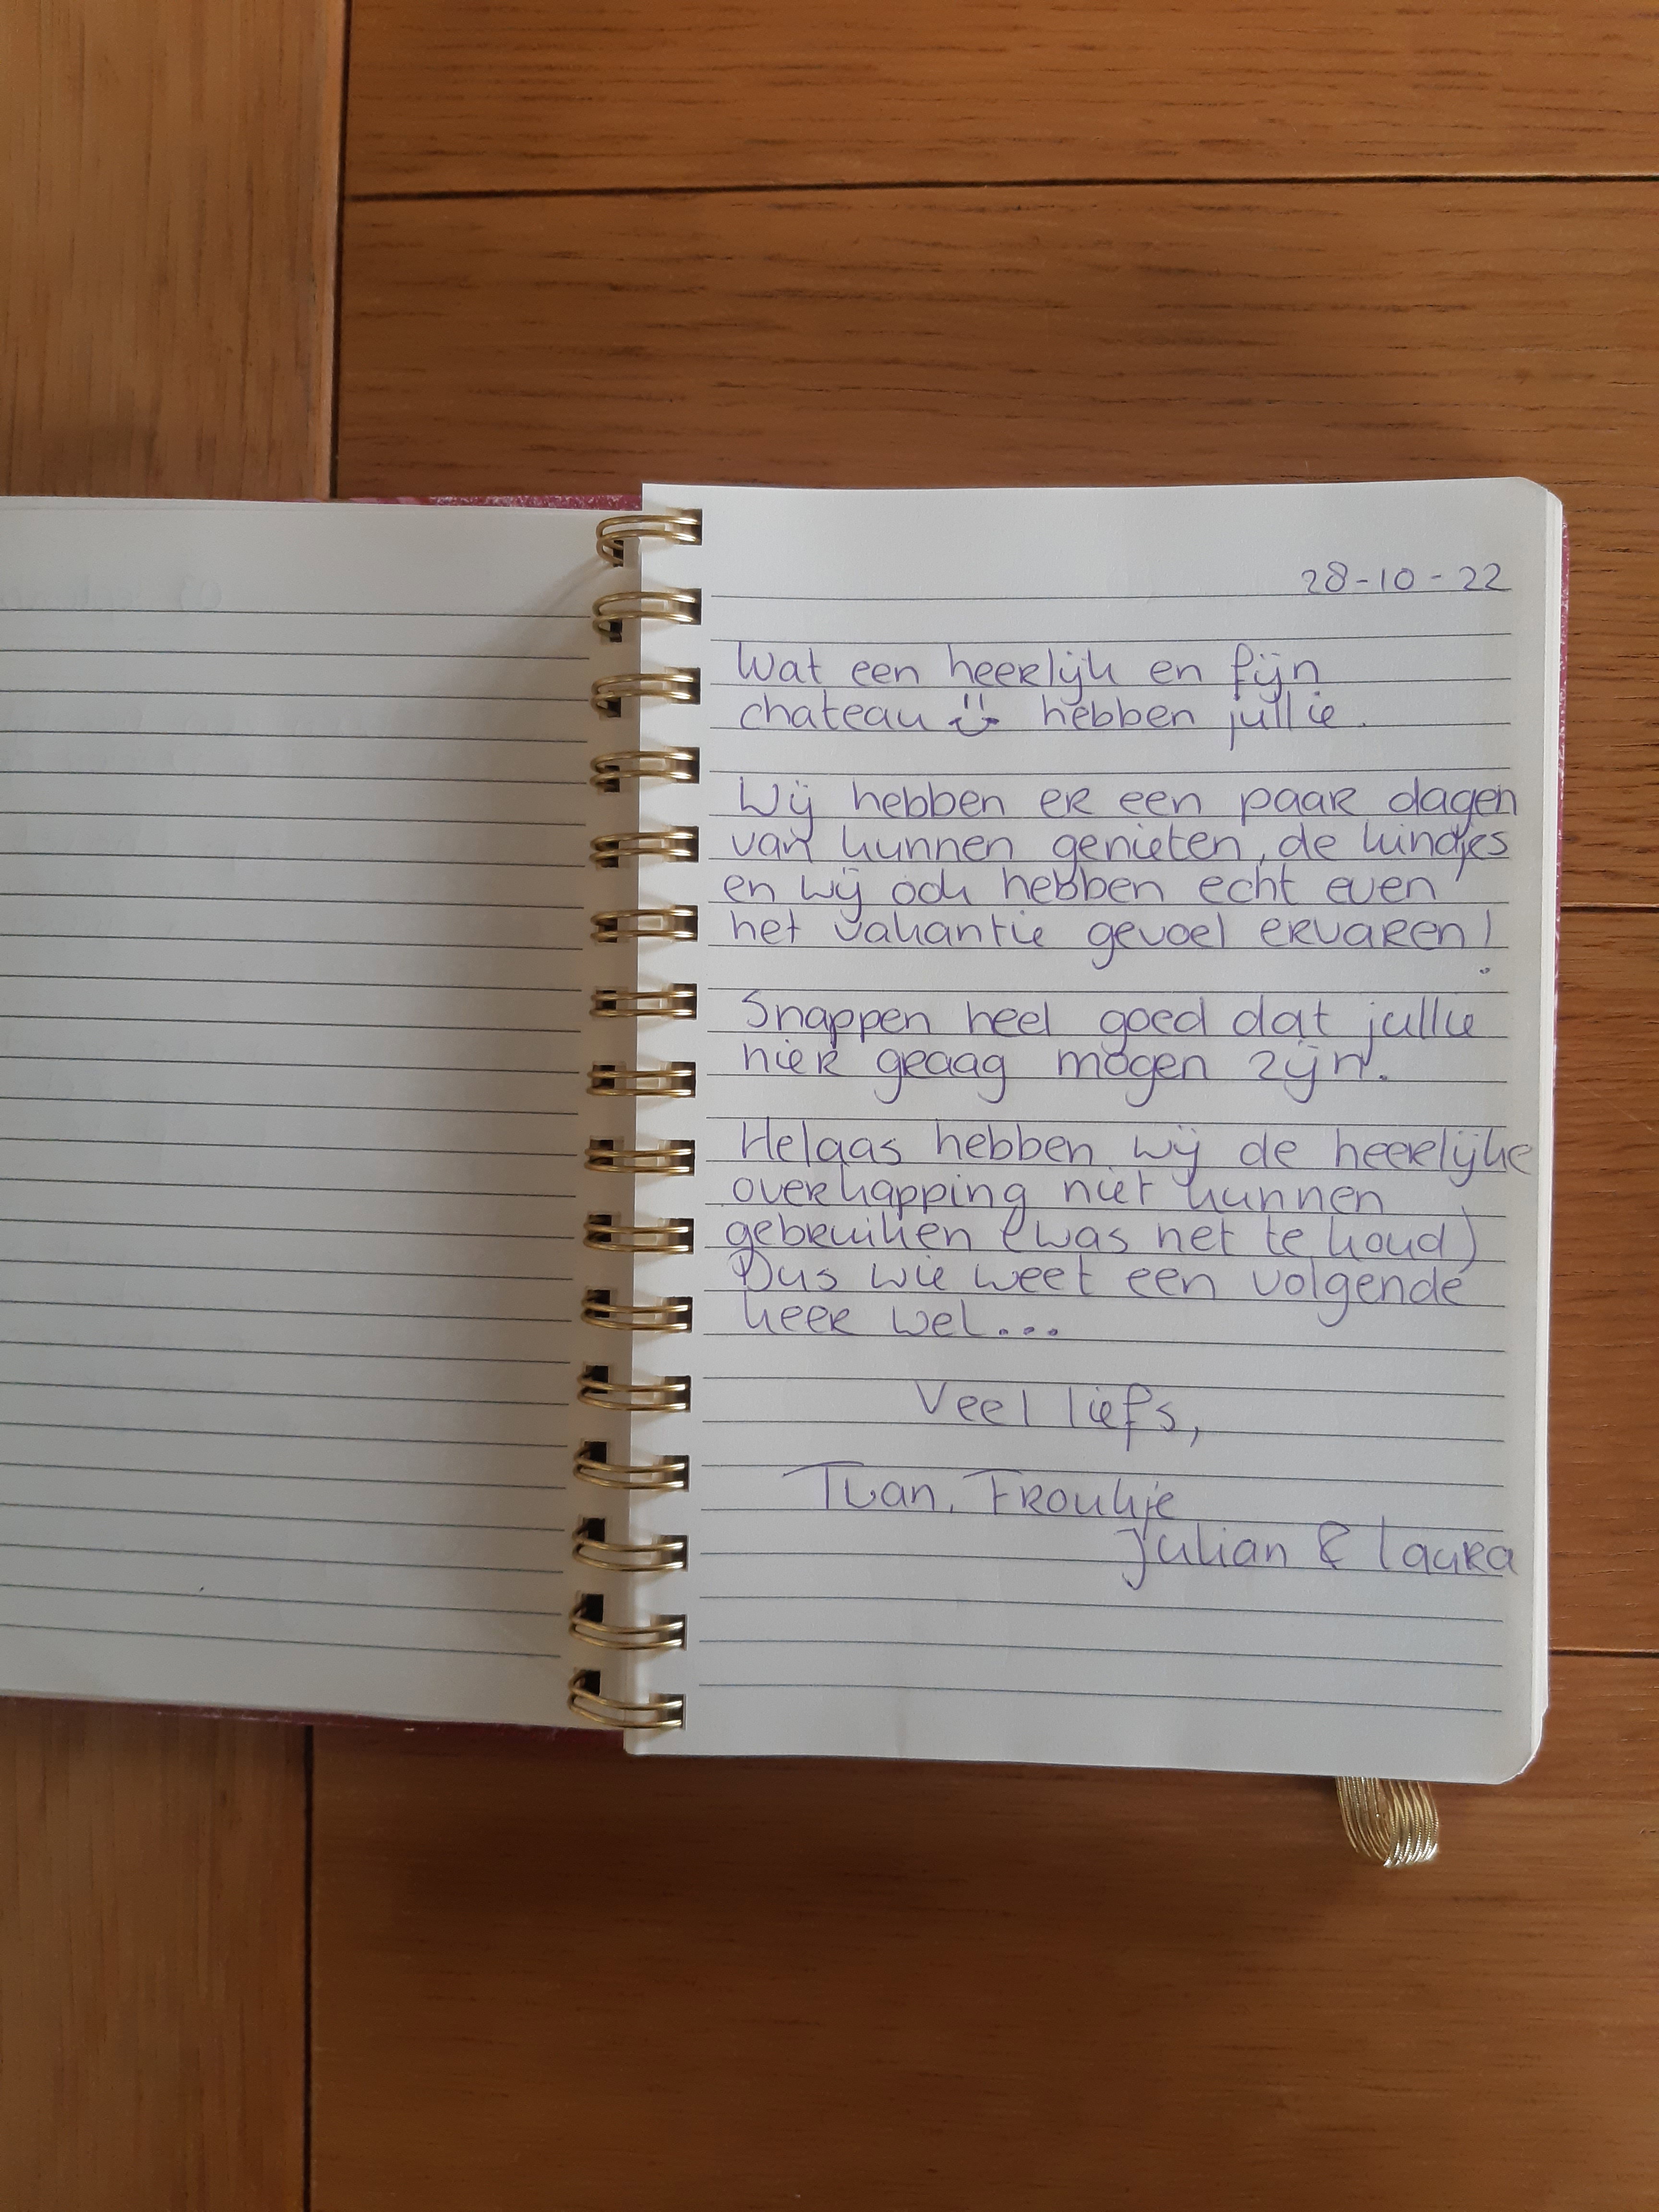 28-10-22
Wat een heerlijk en fijn
chateau hebben jullie.
Wij hebben er een paar dagen
van kunnen genieten, de kindjes
en wij ook hebben echt even
het vakantie gevoel ervaren!
Snappen heel goed dat jullie
hier graag mogen zijn.
Helaas hebben wij de heerlijke
overkapping niet kunnen
gebruiken (was net te koud)
Dus wie weet een volgende
keer wel...
Veel liefs,
Froukje
Julian & Laura